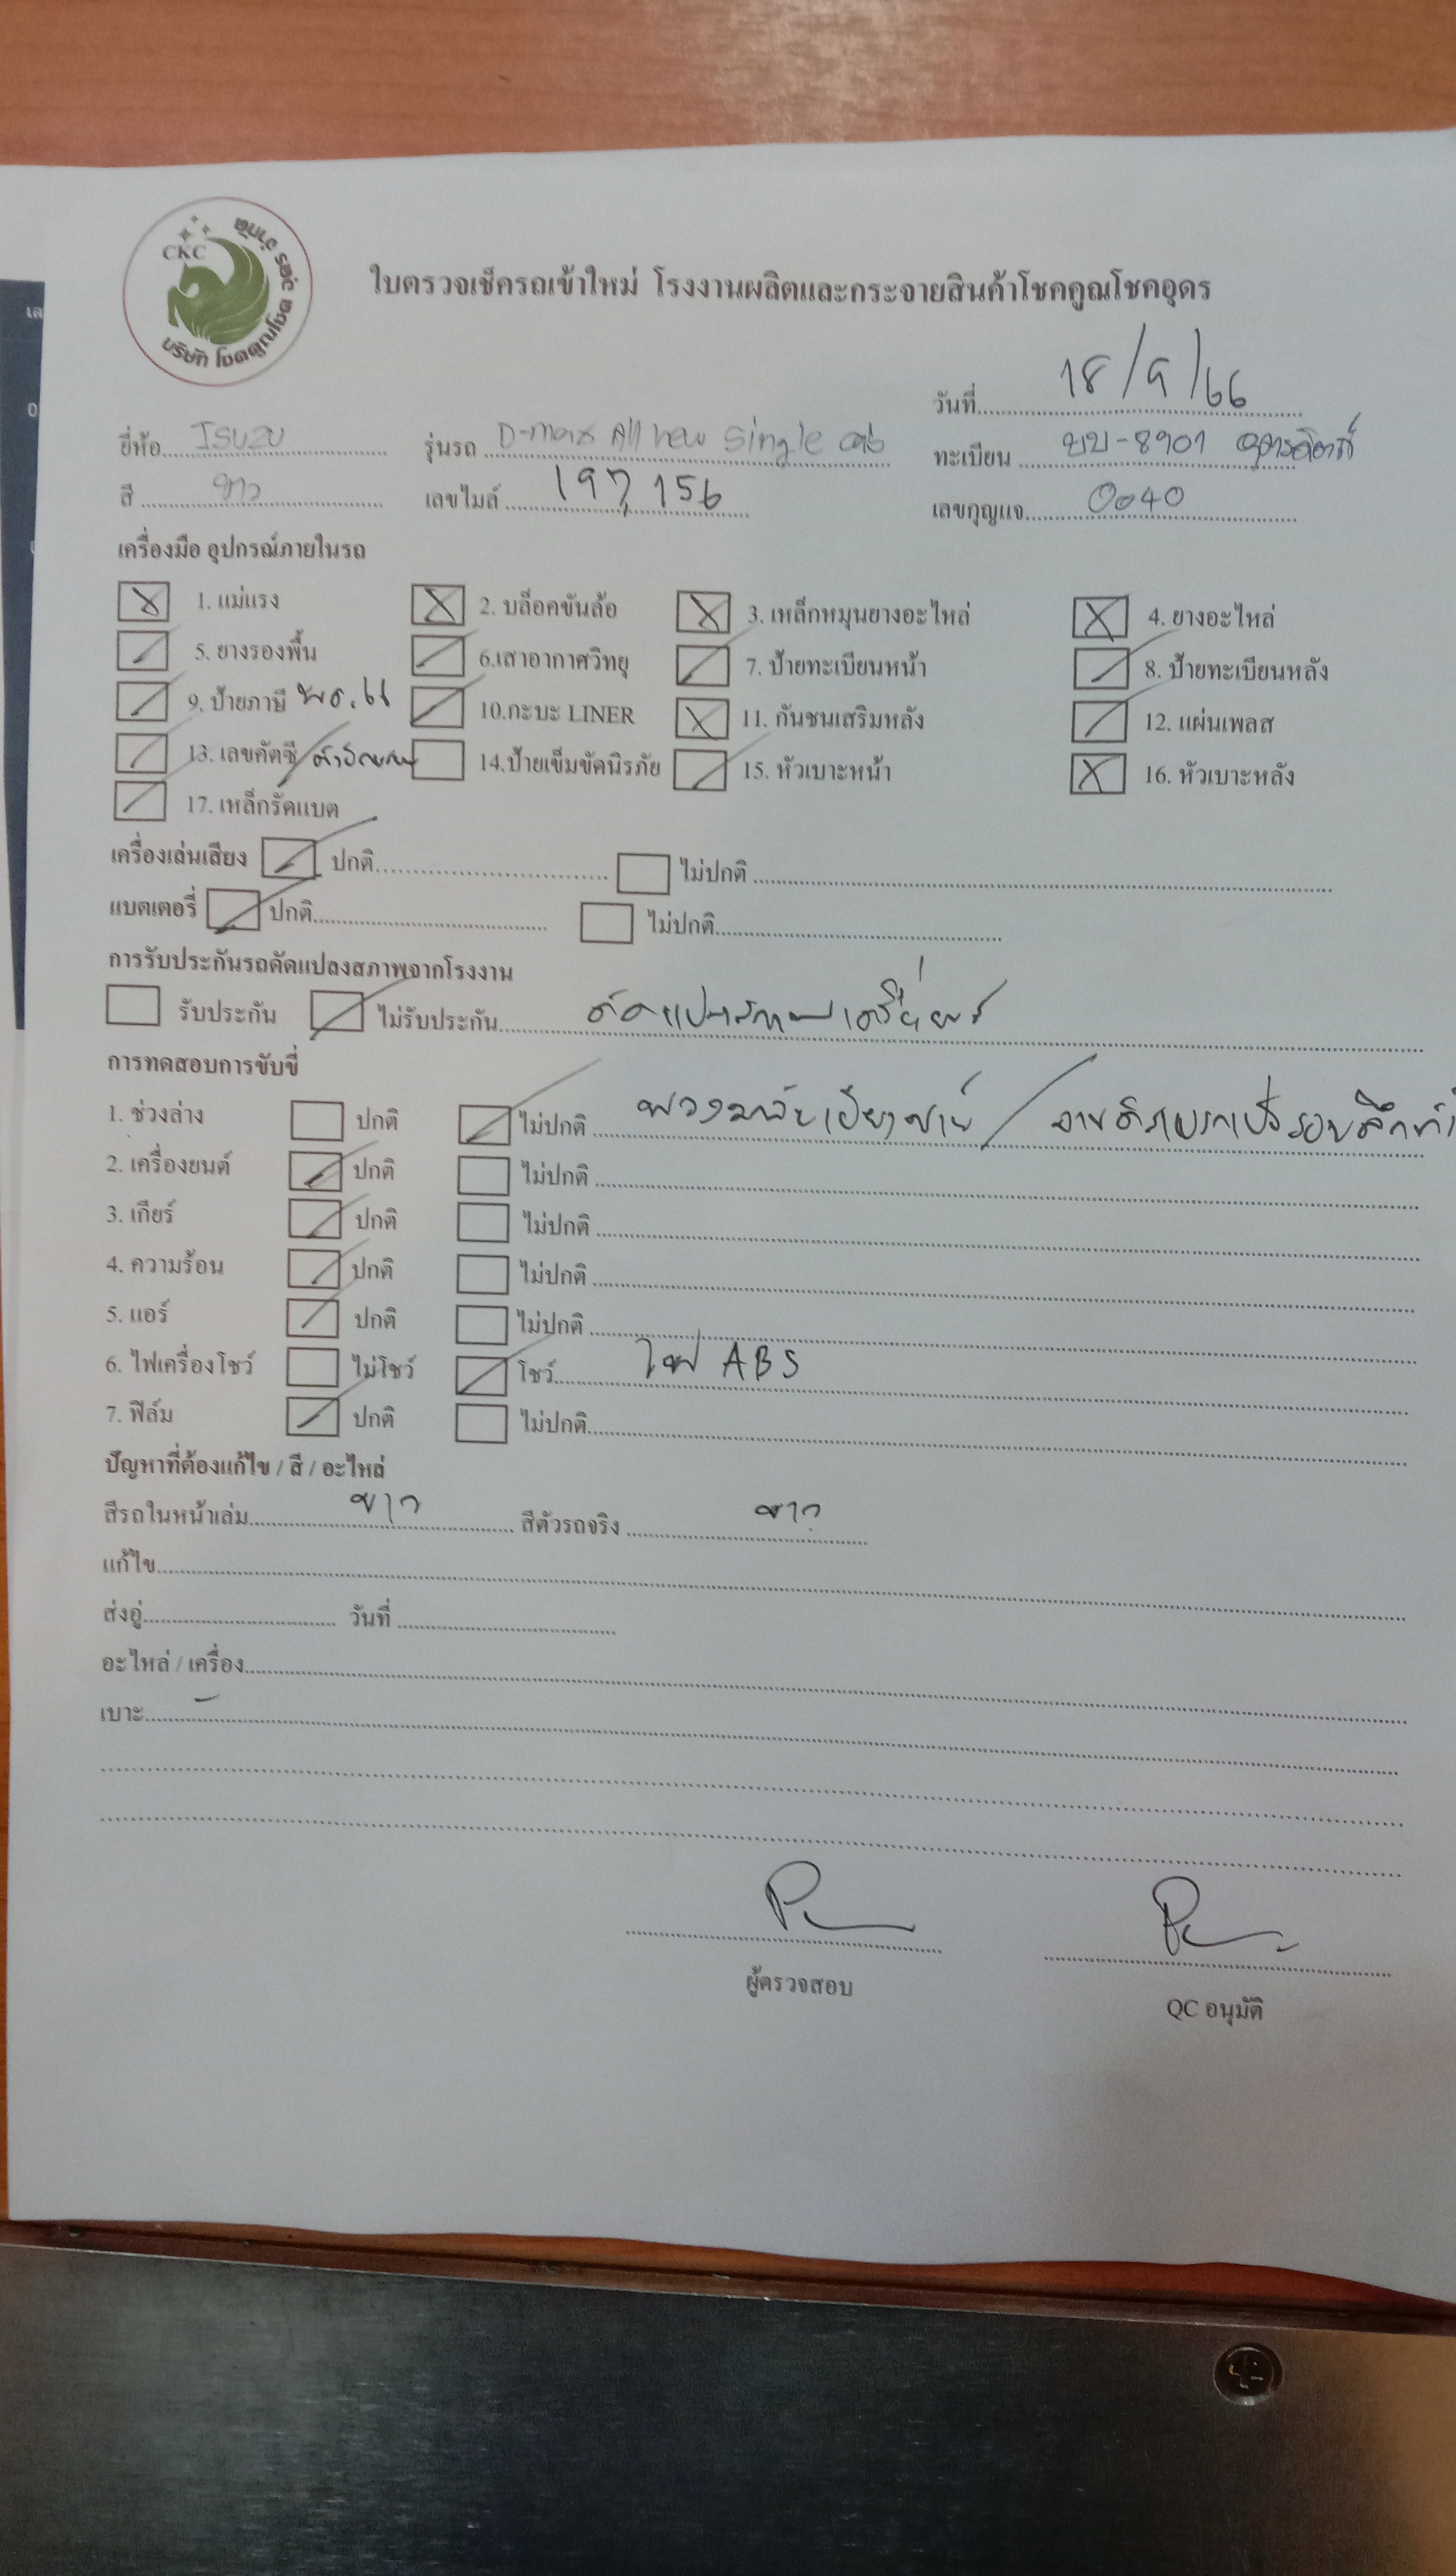 CKC
บริษัท โชคคูณโชค อุดร จำกัด
ใบตรวจเช็ครถเข้าใหม่ โรงงานผลิตและกระจายสินค้าโชคคูณโชคอุดร
วันที่ 18/9/66
ยี่ห้อ ISUZU รุ่นรถ D-max All new single cab ทะเบียน บบ-8901 อุตรดิตถ์
สี ขาว เลขไมล์ 197,156 เลขกุญแจ 0040
เครื่องมือ อุปกรณ์ภายในรถ
1. แม่แรง 2. บล็อคขันล้อ 3. เหล็กหมุนยางอะไหล่ 4. ยางอะไหล่
5. ยางรองพื้น 6.เสาอากาศวิทยุ 7. ป้ายทะเบียนหน้า 8. ป้ายทะเบียนหลัง
9. ป้ายภาษี 10.กะบะ LINER 11. กันชนเสริมหลัง 12. แผ่นเพลส
13. เลขคัตซี 14.ป้ายเข็มขัดนิรภัย 15. หัวเบาะหน้า 16. หัวเบาะหลัง
17. เหล็กรัดแบต
เครื่องเล่นเสียง ปกติ ไม่ปกติ
แบตเตอรี่ ปกติ ไม่ปกติ
การรับประกันรถดัดแปลงสภาพจากโรงงาน
รับประกัน ไม่รับประกัน ดัดแปลงสภาพเครื่องยนต์
การทดสอบการขับขี่
1. ช่วงล่าง ปกติ ไม่ปกติ พวงมาลัยเอียงซ้าย /
2. เครื่องยนต์ ปกติ ไม่ปกติ
3. เกียร์ ปกติ ไม่ปกติ
4. ความร้อน ปกติ ไม่ปกติ
5. แอร์ ปกติ ไม่ปกติ
6. ไฟเครื่องโชว์ ไม่โชว์ โชว์ ไฟ ABS
7. ฟิล์ม ปกติ ไม่ปกติ
ปัญหาที่ต้องแก้ไข / สี / อะไหล่
สีรถในหน้าเล่ม ขาว สีตัวรถจริง ขาว
แก้ไข
ส่งอู่ วันที่
อะไหล่ / เครื่อง
เบาะ
ผู้ตรวจสอบ
QC อนุมัติ